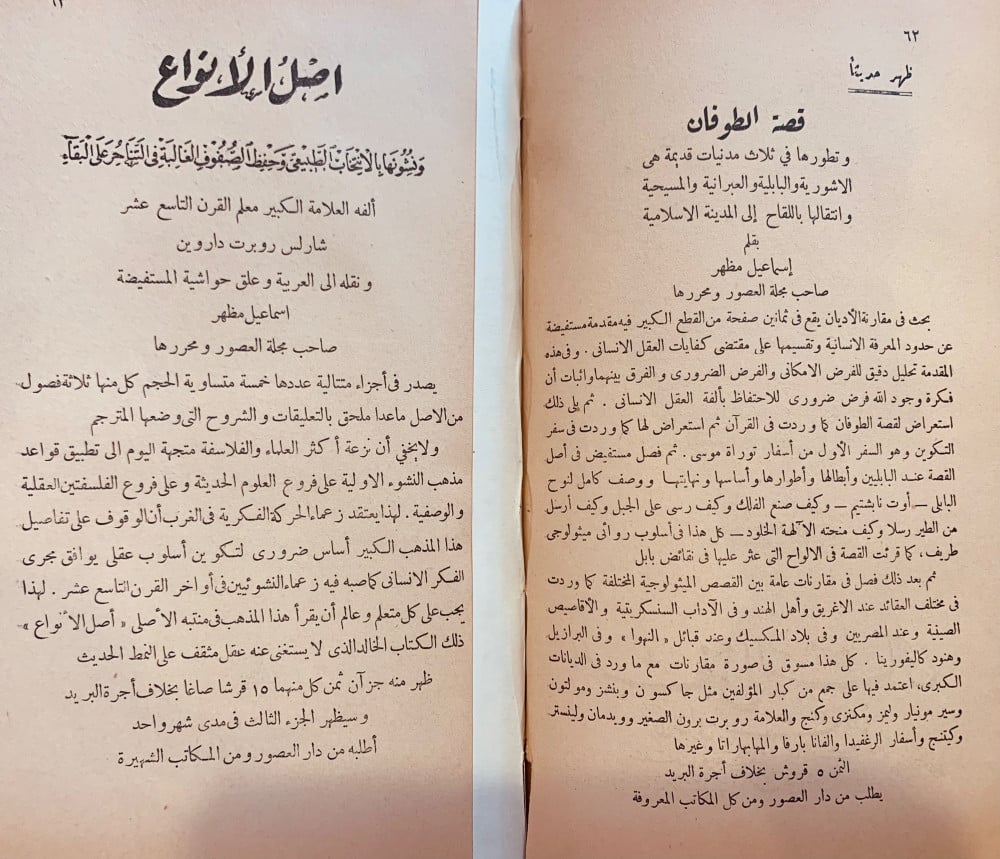 ٦٢
ظهر حديثاً
قصة الطوفان
وتطورها في ثلاث مدنيات قديمة هى
الاشورية والبابلية والعبرانية والمسيحية
وانتقالها باللقاح إلى المدينة الاسلامية
بقلم
إسماعيل مظهر
صاحب مجلة العصور ومحررها
بحث فى مقارنة الأديان يقع فى ثمانين صفحة من القطع الكبير فيه مقدمة مستفيضة
عن حدود المعرفة الانسانية وتقسيمها على مقتضى كفايات العقل الانسانى . وفى هذه
المقدمة تحليل دقيق للفرض الامكانى والفرض الضرورى والفرق بينهما واثبات أن
فكرة وجود الله فرض ضرورى للاحتفاظ بألفة العقل الانسانى . ثم يلى ذلك
استعراض لقصة الطوفان كما وردت فى القرآن ثم استعراض لها كما وردت فى سفر
التكوين وهو السفر الأول من أسفار توراة موسى . ثم فصل مستفيض فى أصل
القصة عند البابليين وأبطالها وأطوارها وأساسها ونهايتها ووصف كامل لنوح
البابلى — أوت نابشتيم — وكيف صنع الفلك وكيف رسى على الجبل وكيف أرسل
من الطير رسلا وكيف منحته الآلهة الخلود — كل هذا فى أسلوب روائى ميثولوجى
طريف ، كما قرئت القصة فى الالواح التى عثر عليها فى نقائض بابل
ثم بعد ذلك فصل فى مقارنات عامة بين القصص الميثولوجية المختلفة كما وردت
فى مختلف العقائد عند الاغريق وأهل الهند وفى الآداب السنسكريتية والأقاصيص
الصينية وعند المصريين وفى بلاد المكسيك وعند قبائل « النهوا » وفى البرازيل
وهنود كاليفورينا . كل هذا مسوق فى صورة مقارنات مع ما ورد فى الديانات
الكبرى، اعتمد فيها على جمع من كبار المؤلفين مثل جاكسون وبنشز ومولتون
وسير مونيار وليمز ومكنزى وكنج والعلامة روبرت برون الصغير وويدمان ولينستر
وكيتنج وأسفار الرغفيدا والفانا بارفا والمهابهاراتا وغيرها
الثمن ٥ قروش بخلاف أجرة البريد
يطلب من دار العصور ومن كل المكاتب المعروفة
اصل الأنواع
ونشوئها بالانتخاب الطبيعى وحفظ الصفوف الغالبة فى التناحر على البقاء
ألفه العلامة الكبير معلم القرن التاسع عشر
شارلس روبرت داروين
ونقله الى العربية وعلق حواشية المستفيضة
اسماعيل مظهر
صاحب مجلة العصور ومحررها
يصدر فى أجزاء متتالية عددها خمسة متساوية الحجم كل منها ثلاثة فصول
من الاصل ماعدا ملحق بالتعليقات والشروح التى وضعها المترجم
ولا يخفي أن نزعة أكثر العلماء والفلاسفة متجهة اليوم الى تطبيق قواعد
مذهب النشوء الاولية على فروع العلوم الحديثة وعلى فروع الفلسفتين العقلية
والوصفية . لهذا يعتقد زعماء الحركة الفكرية فى الغرب أن الوقوف على تفاصيل
هذا المذهب الكبير أساس ضرورى لتكوين أسلوب عقلى يوافق مجرى
الفكر الانسانى كما صبه فيه زعماء النشوئيين فى أواخر القرن التاسع عشر . لهذا
يجب على كل متعلم وعالم أن يقرأ هذا المذهب فى منتبه الأصلى « أصل الأنواع »
ذلك الكتاب الخالد الذى لا يستغنى عنه عقل مثقف على النمط الحديث
ظهر منه جزآن ثمن كل منهما ١٥ قرشا صاغا بخلاف أجرة البريد
وسيظهر الجزء الثالث فى مدى شهر واحد
أطلبه من دار العصور ومن المكاتب الشهيرة